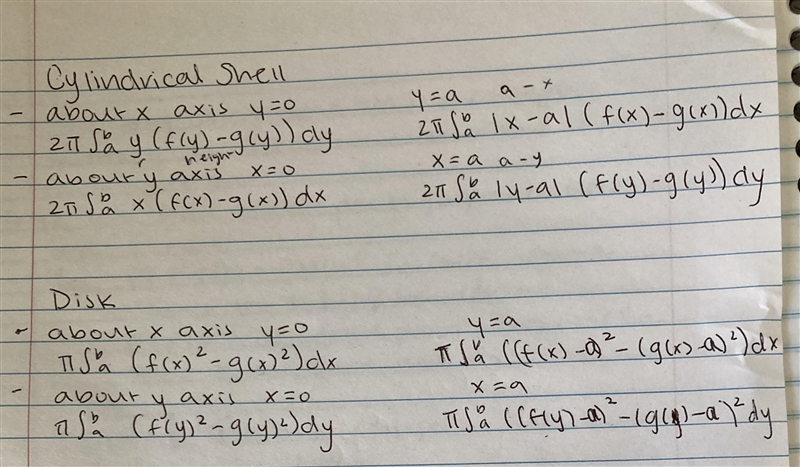 Cylindrical Shell
- about x axis y=0
2π∫ₐᵇ y (f(y)-g(y)) dy
r height
- about y axis x=0
2π∫ₐᵇ x (f(x)-g(x)) dx
y=a a-x
2π∫ₐᵇ |x-a| (f(x)-g(x)) dx
x=a a-y
2π∫ₐᵇ |y-a| (f(y)-g(y)) dy
Disk
- about x axis y=0
π∫ₐᵇ (f(x)²-g(x)²) dx
- about y axis x=0
π∫ₐᵇ (f(y)²-g(y)²) dy
y=a
π∫ₐᵇ ((f(x)-a)²-(g(x)-a)²) dx
x=a
π∫ₐᵇ ((f(y)-a)²-(g(y)-a)² dy